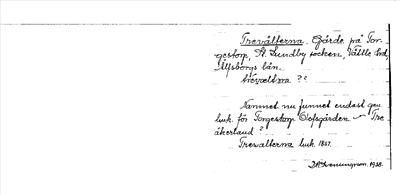 Trevälterna. Gärde på Tor-
gestorp, St. Lundby socken, Vättle hd,
Älfsborgs län.
trevæltrna ??
Namnet nu funnet endast gen
luk. för Torgestorp Olofsgården — Tre
åkerland ?
Trevälterna luk. 1837.
1938.